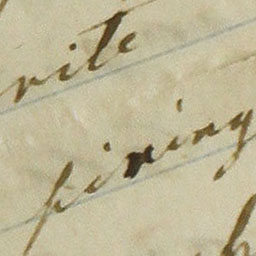 rite
piring